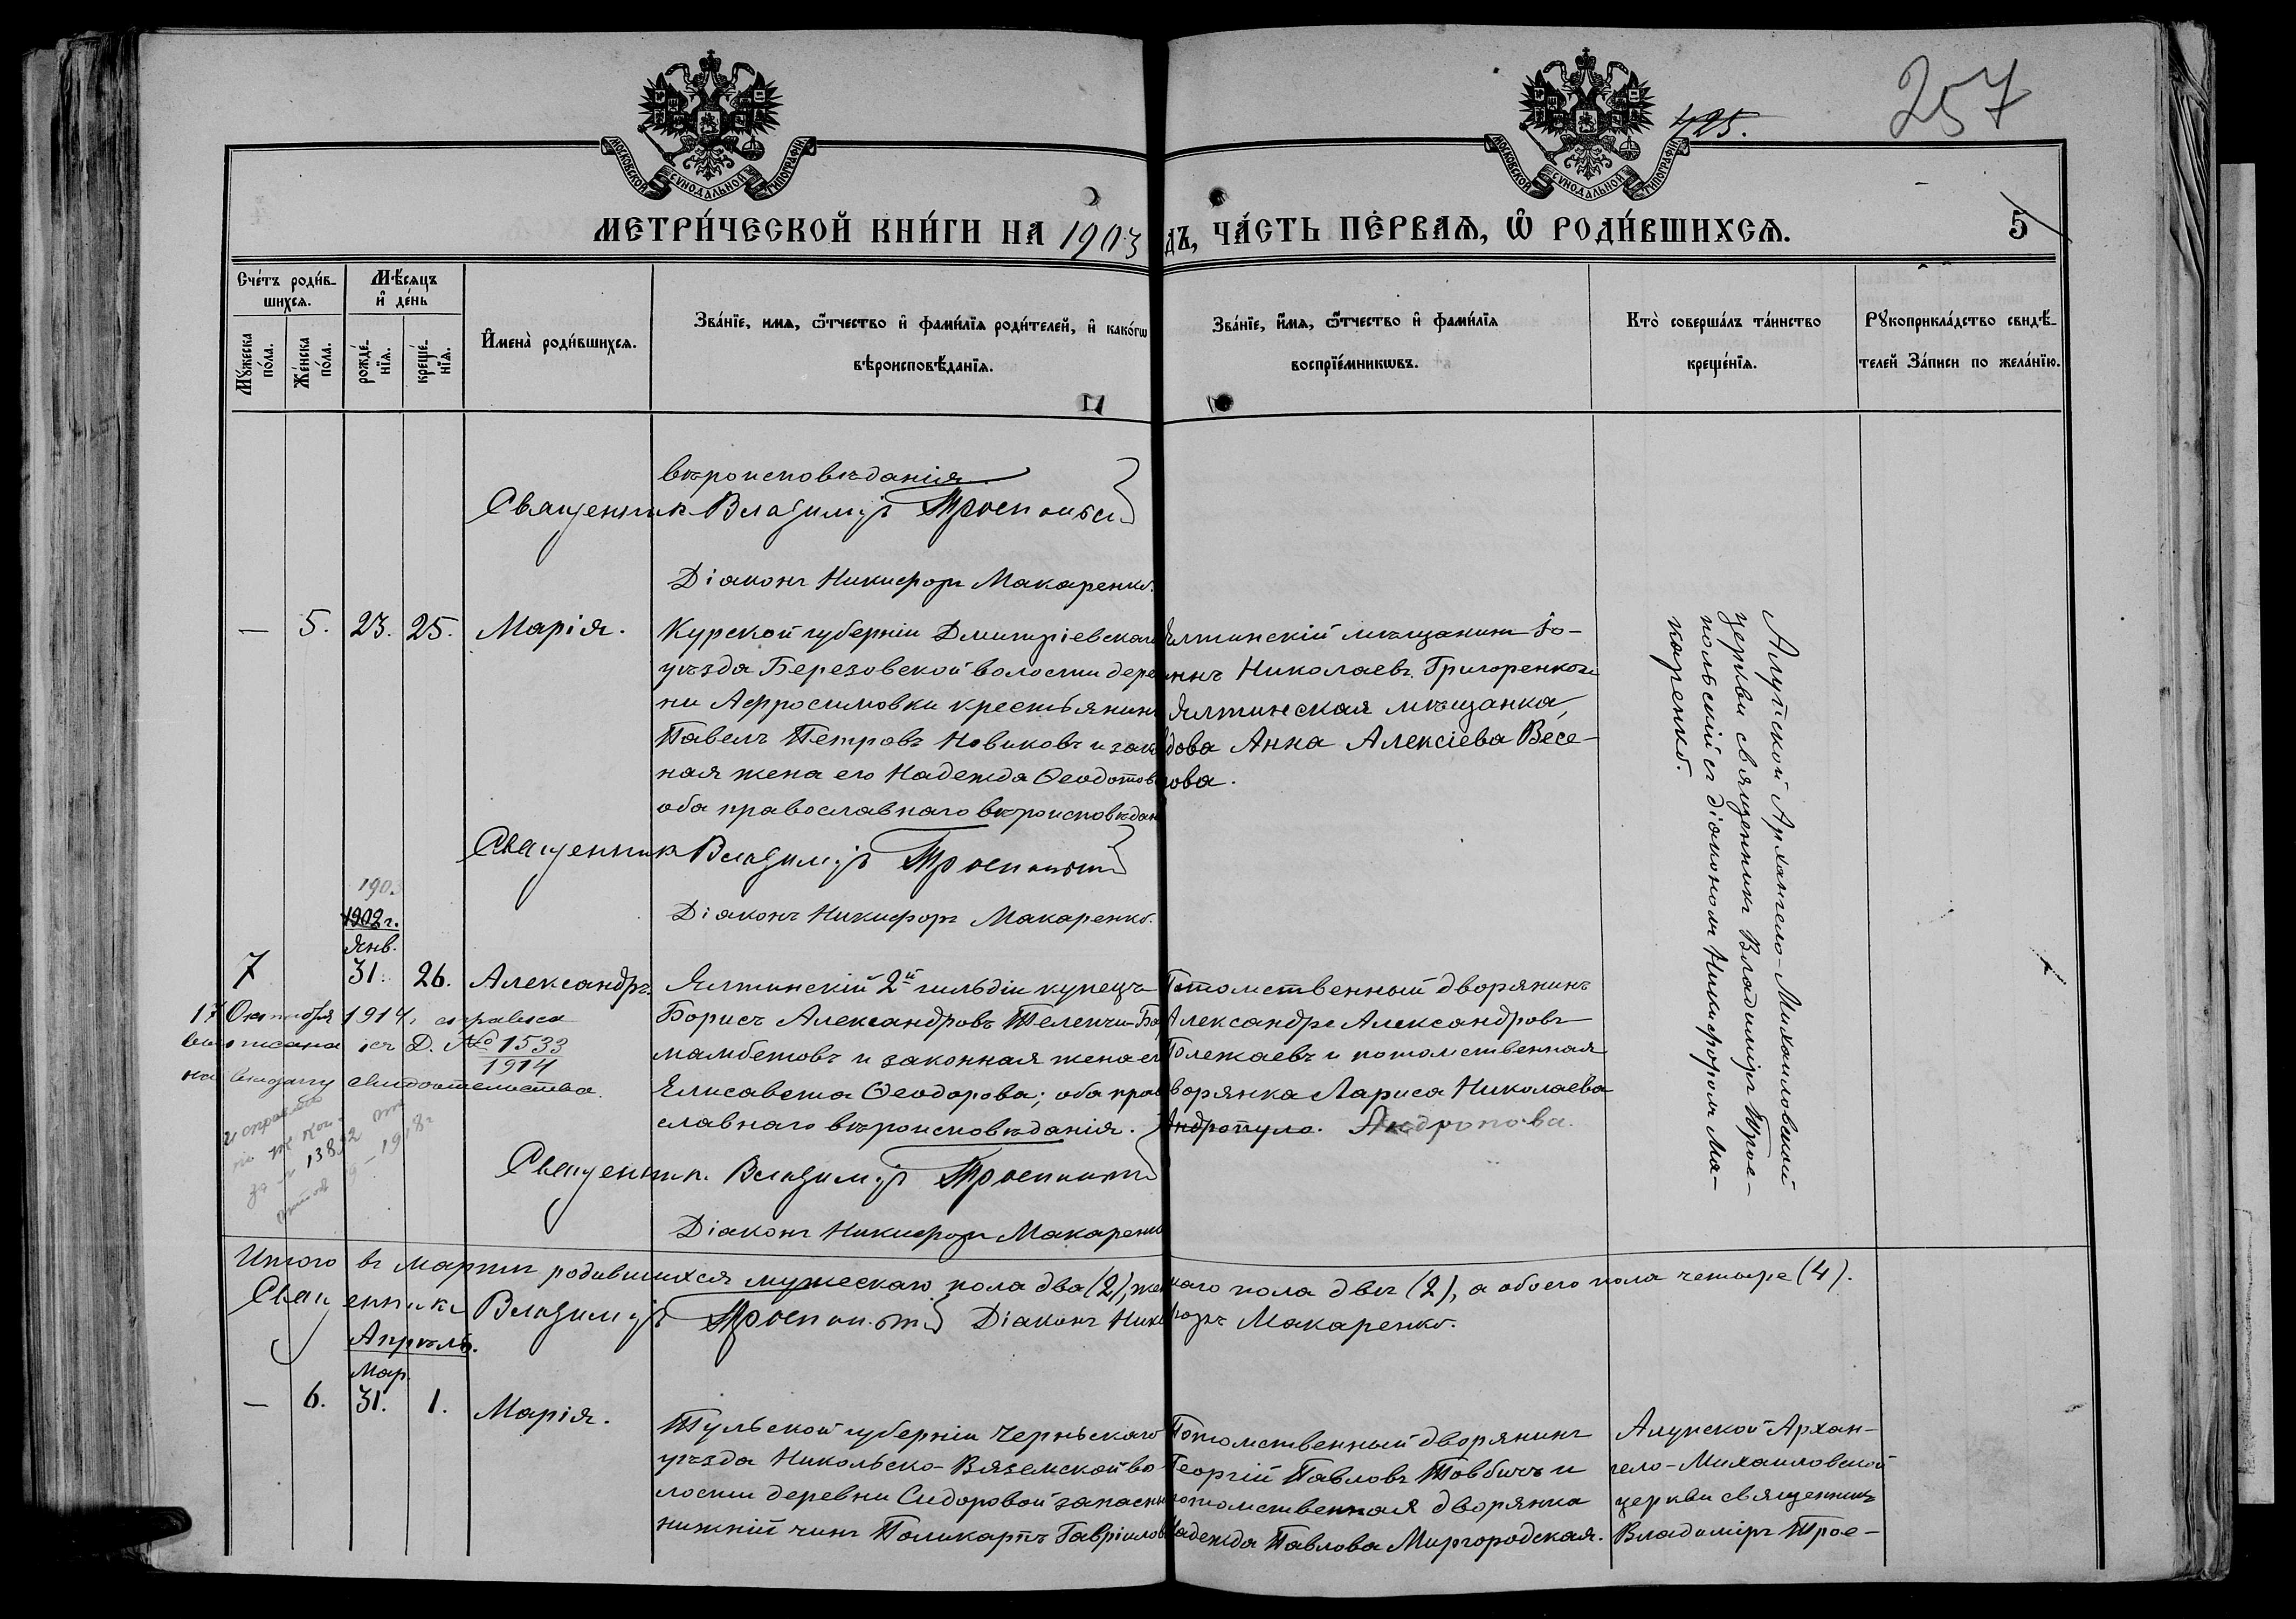 257
425.
МОСКОВСКОЙ СѴНОДАЛЬНОЙ ТИПОГРАФІИ
МОСКОВСКОЙ СѴНОДАЛЬНОЙ ТИПОГРАФІИ
МЕТРИ́ЧЕСКОЙ КНИ́ГИ НА 1903
ДЪ, ЧА́СТЬ ПЕ́РВАѦ, Ѡ҆ РОДИ́ВШИХСѦ.
5
Сче́тъ роди́в-
шихсѧ.
Мꙋ́жеска по́ла.
Же́нска по́ла.
Мѣ́сѧцъ
и҆ де́нь
рожде́-
нїѧ.
креще́-
нїѧ.
И҆мена̀ роди́вшихсѧ.
Зва́нїе, имѧ, ѻ҆́тчество и҆ фами́лїѧ роди́телей, и҆ како́гѡ
вѣроисповѣ́данїѧ.
Зва́нїе, и҆́мѧ, ѻ҆́тчество и҆ фами́лїѧ
воспрїе́мникѡвъ.
Кто̀ соверша́лъ та́инство
креще́нїѧ.
Рꙋкоприкла́дство свидѣ́-
телей За́писи по жела́нїю.
вѣроисповѣданія.
Священникъ Владимиръ Троепольскій
Діаконъ Никифоръ Макаренко.
— 5. 23. 25. Марія.
Курской губерніи Дмитріевскаго
уѣзда Березовской волости дере
ни Афросимовки крестьянинъ
Павелъ Петровъ Новиковъ и зак
ная жена его Надежда Ѳеодотов
оба православнаго вѣроисповѣдан
Ялтинскій мѣщанинъ Іо-
ннъ Николаевъ Григоренко и
Ялтинская мѣщанка,
дова Анна Алексіева Весе-
лова.
Священникъ Владимиръ Троепольскій
Діаконъ Никифоръ Макаренко.
Алупской Архангело-Михаиловской
церкви священникъ Владиміръ Трое-
польскій съ діакономъ Никифоромъ Ма-
каренко.
1903
1902 г.
Янв.
7 31. 26. Александръ.
Ялтинскій 2й гильдіи купецъ
Борисъ Александровъ Теленчи-Ба
мамбетовъ и законная жена ег
Елисавета Ѳеодорова; оба прав
славнаго вѣроисповѣданія.
Потомственный дворянинъ
Александръ Александровъ
Полежаевъ и потомственная
дворянка Лариса Николаева
Андропуло. Андропова.
17 Октября 1914, справка
выписана въ Д. № 1533
1914
на выдачу свидѣтельства.
Священникъ Владимиръ Троепольскій
Діаконъ Никифоръ Макаренко
Итого въ мартѣ родившихся мужескаго пола два (2), жен
каго пола двѣ (2), а обоего пола четыре (4).
Священникъ Владимиръ Троепольскій Діаконъ Ники
форъ Макаренко.
Апрѣль.
Мар.
— 6. 31. 1. Марія.
Тульской губерніи Чернскаго
уѣзда Никольско-Вяземской во
лости деревни Сидоровой запасны
нижній чинъ Поликарпъ Гавріилов
Потомственный дворянинъ
Георгій Павловъ Товбичъ и
потомственная дворянка
Надежда Павлова Миргородская.
Алупской Архан-
гело-Михаиловской
церкви священникъ
Владиміръ Трое-